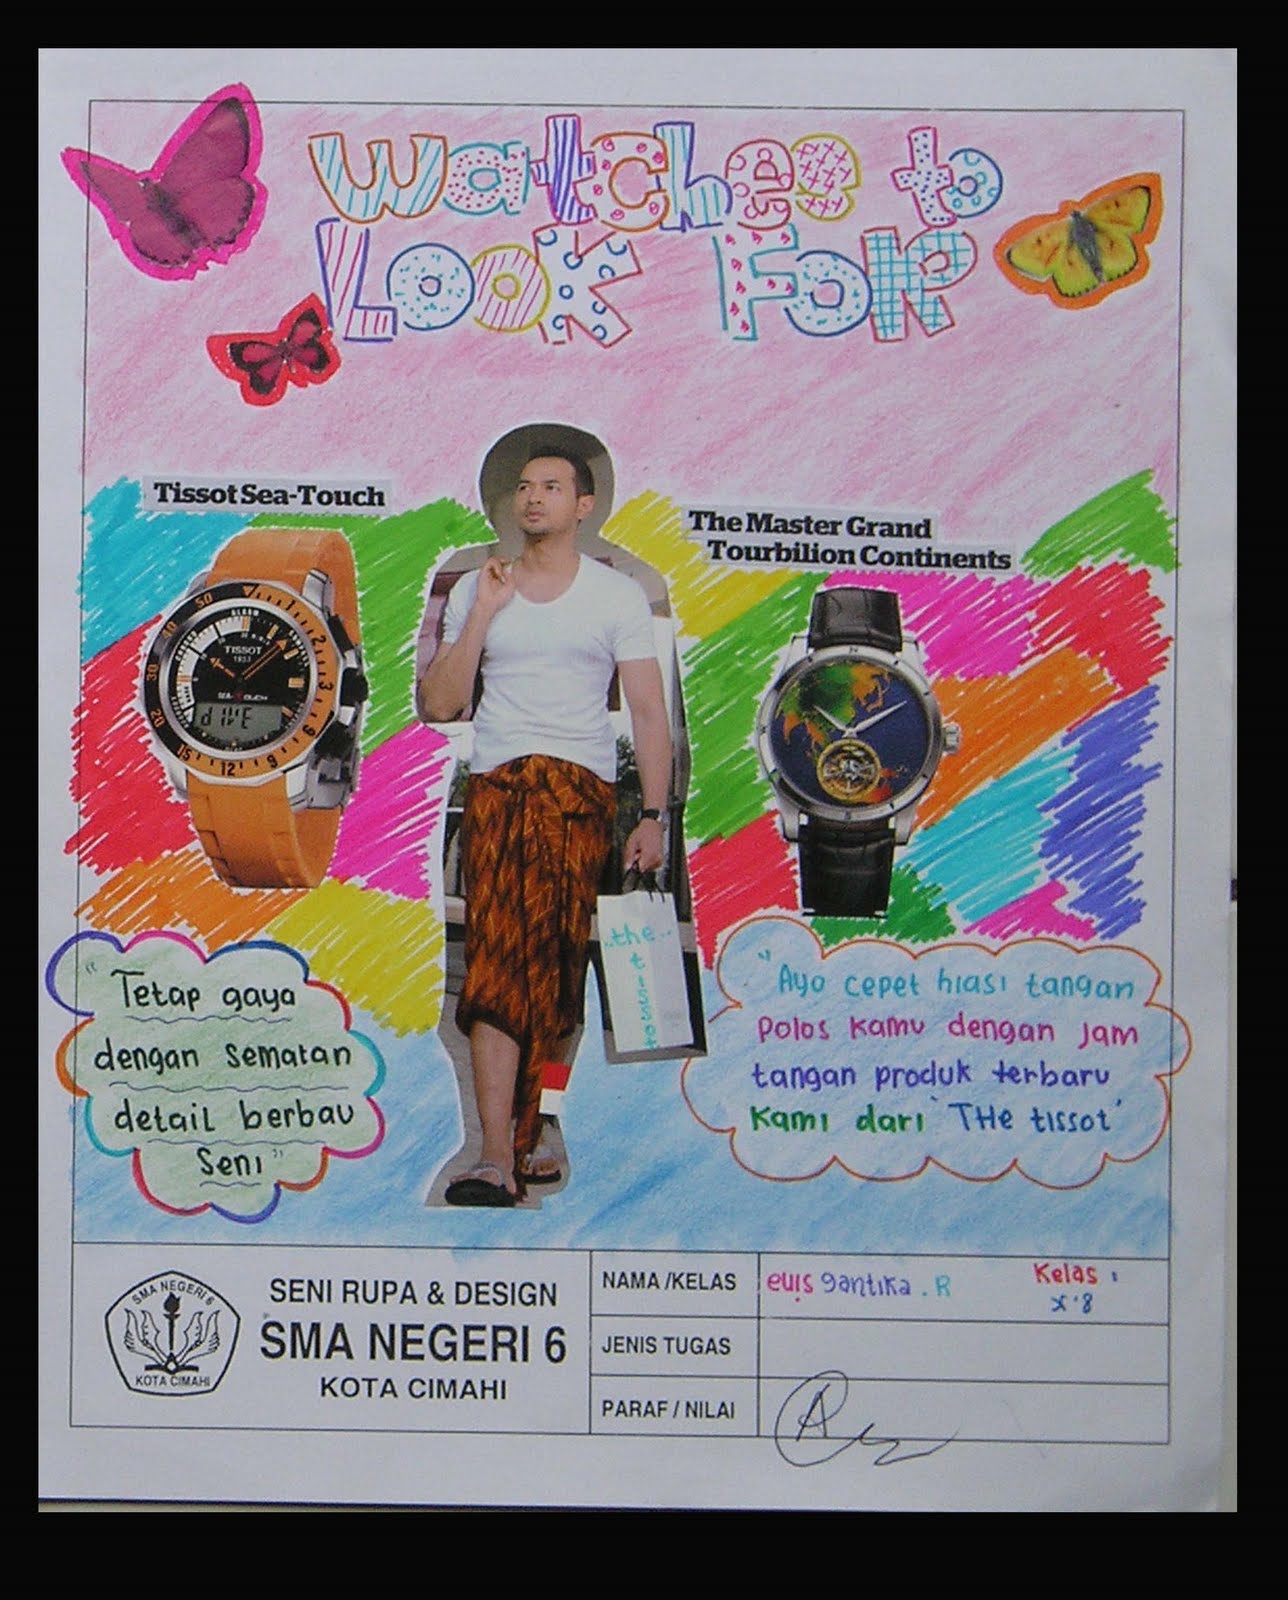 Watches to
Look For
Tissot Sea-Touch
The Master Grand
Tourbilion Continents
50
40
30
20
15
12
9
3
2
1
TISSOT
1853
SEA-TOUCH
dIVE
..the..
tissot
"Tetap gaya
dengan sematan
detail berbau
Seni"
"Ayo cepet hiasi tangan
Polos kamu dengan jam
tangan produk terbaru
Kami dari 'THe tissot'
SMA NEGERI 6
KOTA CIMAHI
SENI RUPA & DESIGN
SMA NEGERI 6
KOTA CIMAHI
NAMA /KELAS euis gantika . R Kelas :
X.8
JENIS TUGAS
PARAF / NILAI A